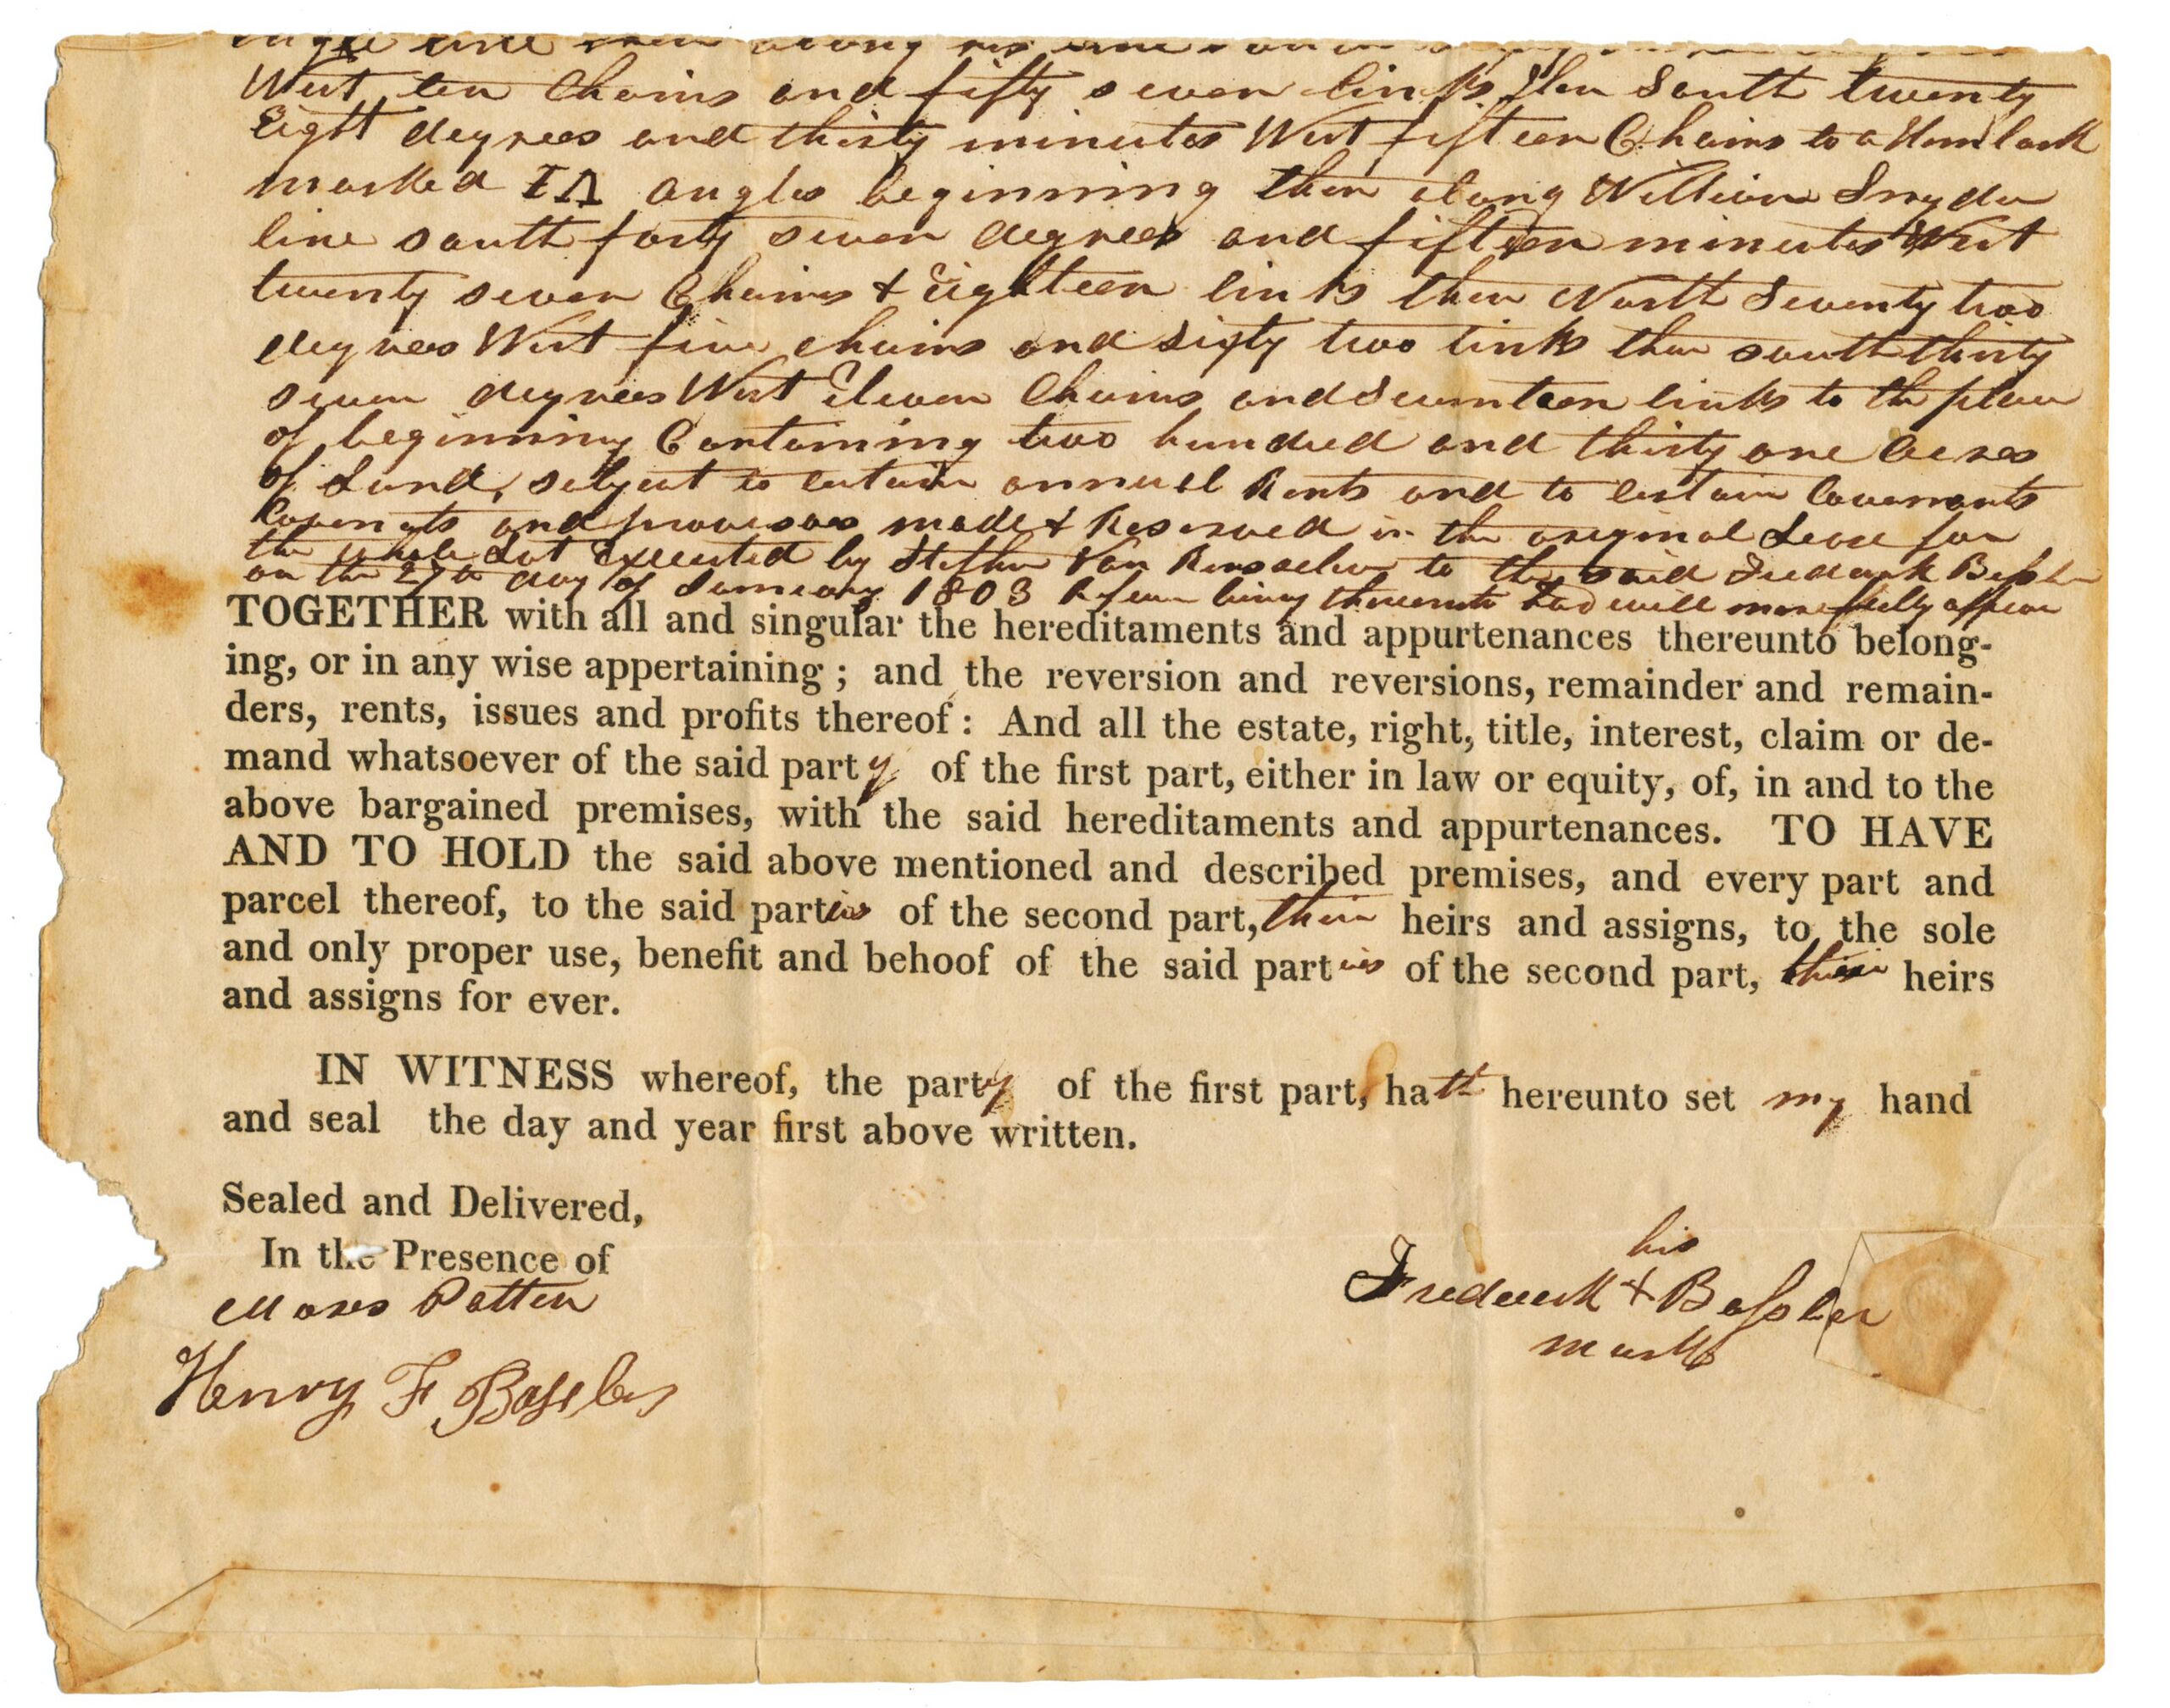 West ten Chains and fifty seven links then South twenty
Eight degrees and thirty minutes West fifteen Chains to a Hemlock
marked angles beginning then along William Snyder
line south forty seven degrees and fifteen minutes West
twenty seven Chains & Eighteen links then North Seventy two
degrees West five chains and sixty two links then south thirty
seven degrees West Eleven Chains and Seventeen links to the place
of beginning Containing two hundred and thirty one Acres
of Land, subject to certain annual Rents and to certain Covenants
and provisoes made & Reserved in the original Lease for
the whole Lot Executed by Stephen Van Rensselaer to the said Frederick Bassler
on the 27th day of January 1803 being thereunto had will more fully appear
TOGETHER with all and singular the hereditaments and appurtenances thereunto belong-
ing, or in any wise appertaining ; and the reversion and reversions, remainder and remain-
ders, rents, issues and profits thereof : And all the estate, right, title, interest, claim or de-
mand whatsoever of the said party of the first part, either in law or equity, of, in and to the
above bargained premises, with the said hereditaments and appurtenances. TO HAVE
AND TO HOLD the said above mentioned and described premises, and every part and
parcel thereof, to the said parties of the second part, their heirs and assigns, to the sole
and only proper use, benefit and behoof of the said parties of the second part, their heirs
and assigns for ever.
IN WITNESS whereof, the party of the first part, hath hereunto set my hand
and seal the day and year first above written.
Sealed and Delivered,
In the Presence of
Moses Patten
Henry F Bassler
his
Frederick + Bassler
mark